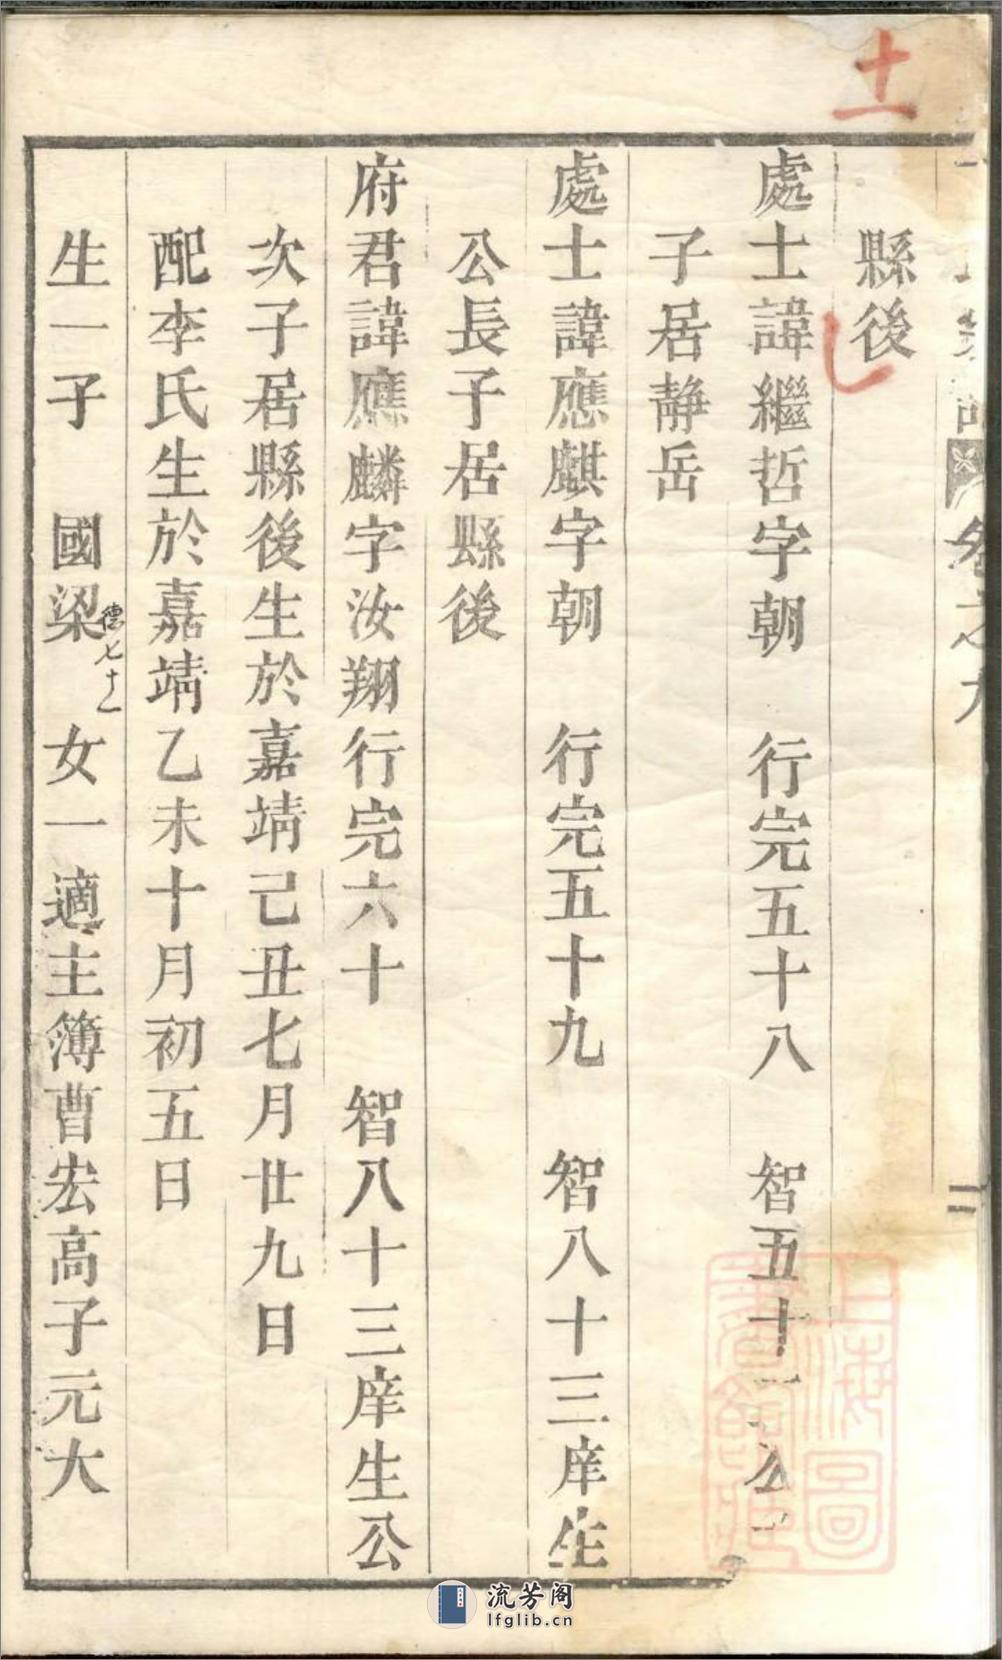 十一
卷之九
二
縣後
處士諱繼哲字朝　行完五十八　智五十一公
子居靜岳
處士諱應麒字朝　行完五十九　智八十三庠生
公長子居縣後
府君諱應麟字汝翔行完六十　智八十三庠生公
次子居縣後生於嘉靖己丑七月廿九日
配李氏生於嘉靖乙未十月初五日
生一子　國梁德七十一　女一適主簿曹宏高子元大
上海圖書館藏
流芳阁
lfglib.cn